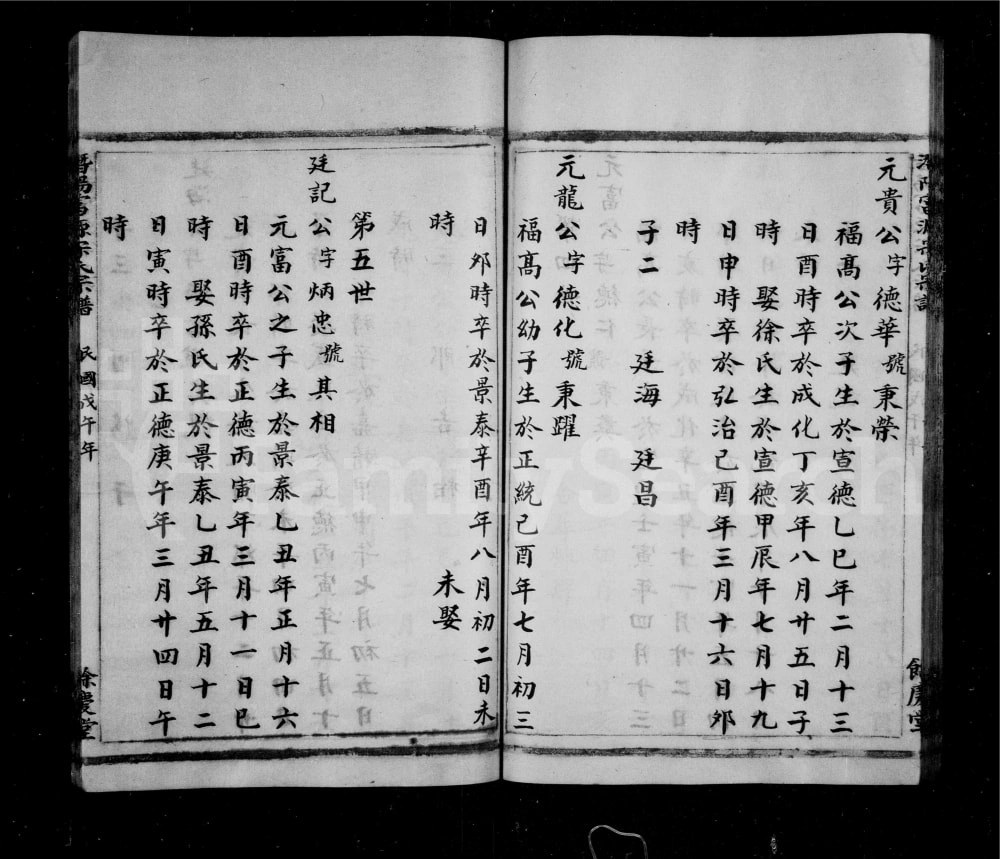 元貴公字德華號秉榮
福高公次子生於宣德乙巳年二月十三
日酉時卒於成化丁亥年八月廿五日子
時 娶徐氏生於宣德甲辰年七月十九
日申時卒於弘治己酉年三月十六日卯
時
子二 廷海 廷昌
元龍公字德化號秉躍
福高公幼子生於正統己酉年七月初三
日卯時卒於景泰辛酉年八月初二日未
時 未娶
第五世
廷記公字炳忠號其相
元富公之子生於景泰乚丑年正月十六
日酉時卒於正德丙寅年三月十一日巳
時 娶孫氏生於景泰乚丑年五月十二
日寅時卒於正德庚午年三月廿四日午
時
富源 氏宗譜 民國戊午年 餘慶堂
FamilySearch